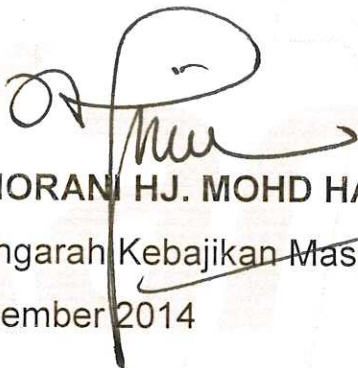 NORANI HJ. MOHD HA
ngarah Kebajikan Mas
ember 2014